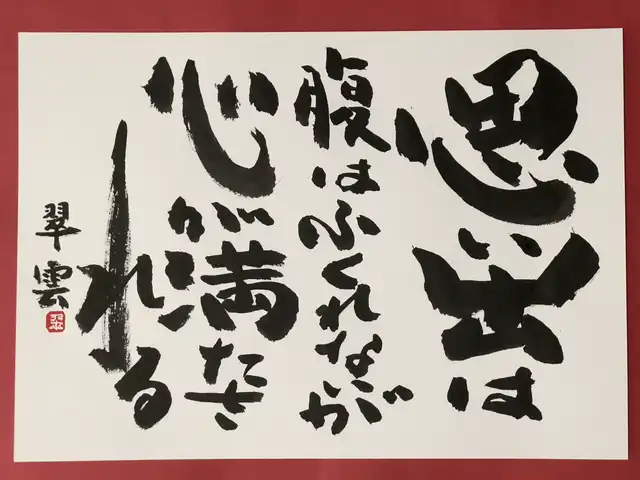 思い出は
腹はふくれなが
心が満たさ
れる
翠雲
翠